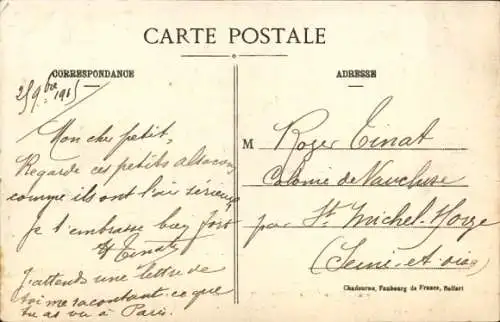 CARTE POSTALE
CORRESPONDANCE
ADRESSE
25 9bre 1915
Mon cher petit,
Regarde ces petits alsaciens
comme ils ont l'air sérieux
Je t'embrasse bien fort
Tinat
J'attends une lettre de
toi me racontant ce que
tu as vu à Paris.
M Roger Tinat
Colonie de Vaucluse
par St. Michel-s/Orge
(Seine-et-oise)
Chadourne, Faubourg de France, Belfort